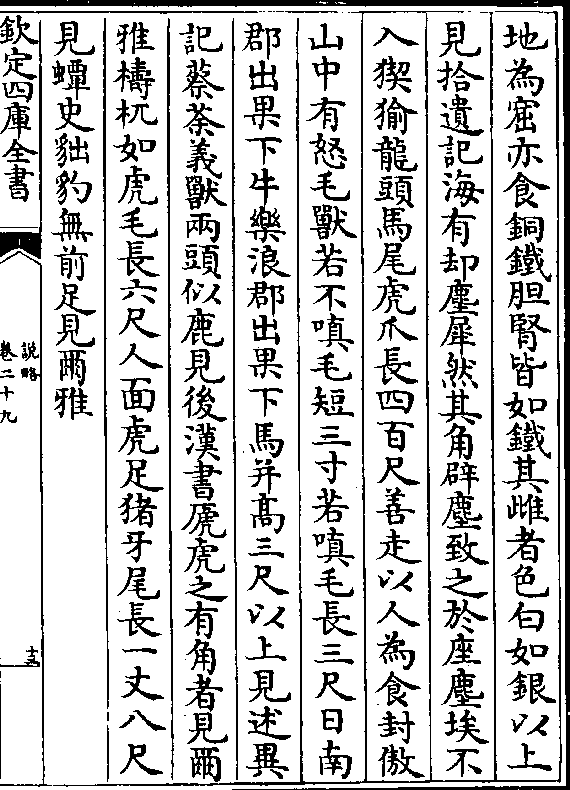 地為窟亦食銅鐵胆腎皆如鐵其雌者色白如銀以上
見拾遺記海有却塵犀然其角辟塵致之於座塵埃不
入猰㺄龍頭馬尾虎爪長四百尺善走以人為食封傲
山中有怒毛獸若不嗔毛短三寸若嗔毛長三尺日南
郡出果下牛樂浪郡出果下馬并髙三尺以上見述異
記蔡荼義獸兩頭似鹿見後漢書虒虎之有角者見爾
雅檮杌如虎毛長六尺人面虎足猪牙尾長一丈八尺
見蟫史貀豹無前足見爾雅
欽定四庫全書
說略
卷二十九
十三